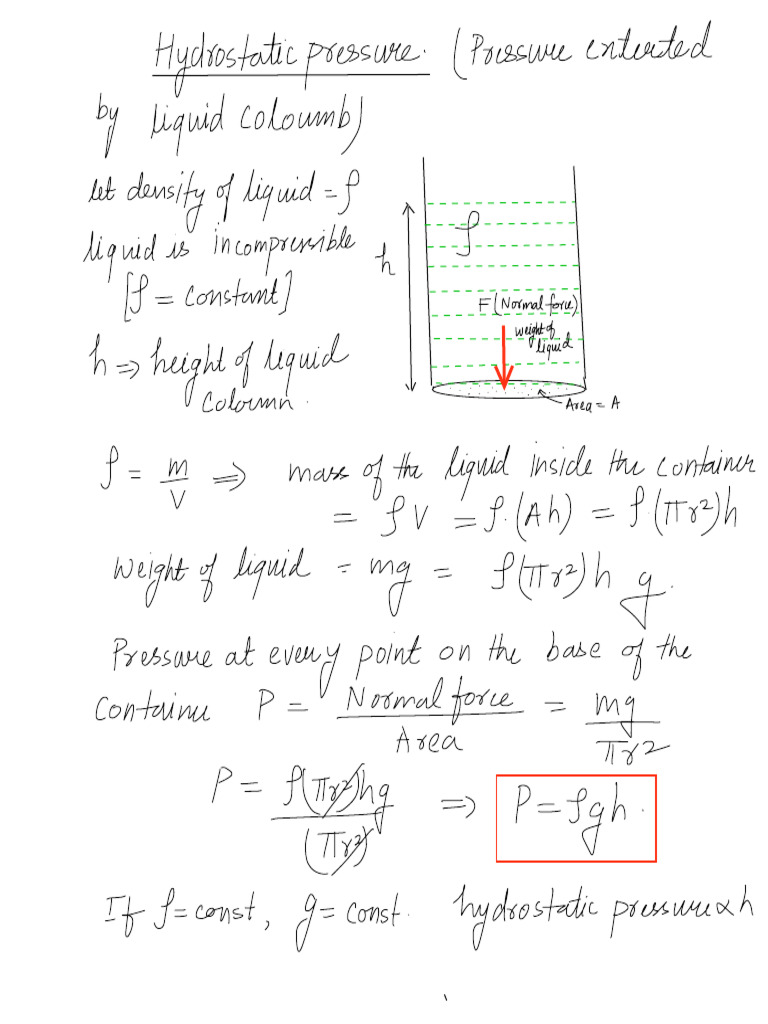 Hydrostatic pressure. (Pressure enterted
by liquid coloumb)
let density of liquid = ρ
liquid is incompressible
[ρ = constant]
h ⇒ height of liquid
coloumn.
h
ρ
F (Normal force)
weight of
liquid
Area = A
ρ = m/V ⇒ mass of the liquid inside the container
= ρV = ρ.(Ah) = ρ.(πr²)h
Weight of liquid = mg = ρ(πr²)h g.
Pressure at every point on the base of the
container P = Normal force/Area = mg/πr²
P = ρ(πr²)hg/(πr²) ⇒ P = ρgh.
If ρ = const, g = const. hydrostatic pressure ∝ h